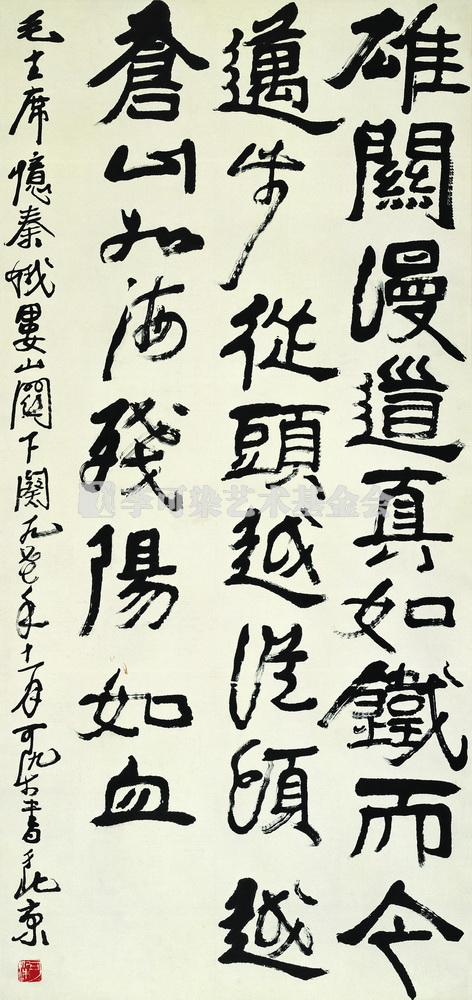 雄關漫道真如鐵而今
邁步從頭越從頭越
蒼山如海殘陽如血
毛主席憶秦娥婁山關下闋九七七年十一月可染書于北京
李可染艺术基金会